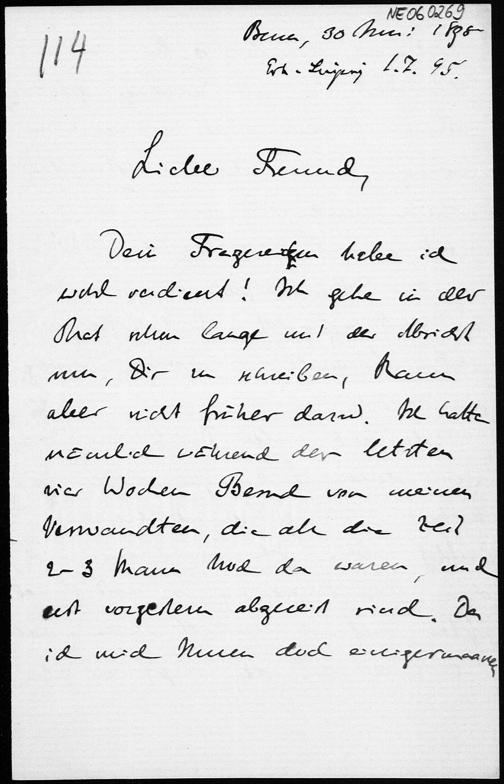 NE060269
114
Bern, 30 Juni 1895
Erh. Leipzig 1.7.95.
Lieber Freund,
Dein Fragezeichen habe ich
wohl verdient! Ich gehe in der
That schon lange mit der Absicht
um, Dir zu schreiben, kam
aber nicht früher dazu. Ich hatte
nämlich während der letzten
vier Wochen Besuch von meinen
Verwandten, die alle die Zeit
2-3 Mann hoch da waren, und
erst vorgestern abgereist sind. Da
ich mich ihnen doch einigermaassen